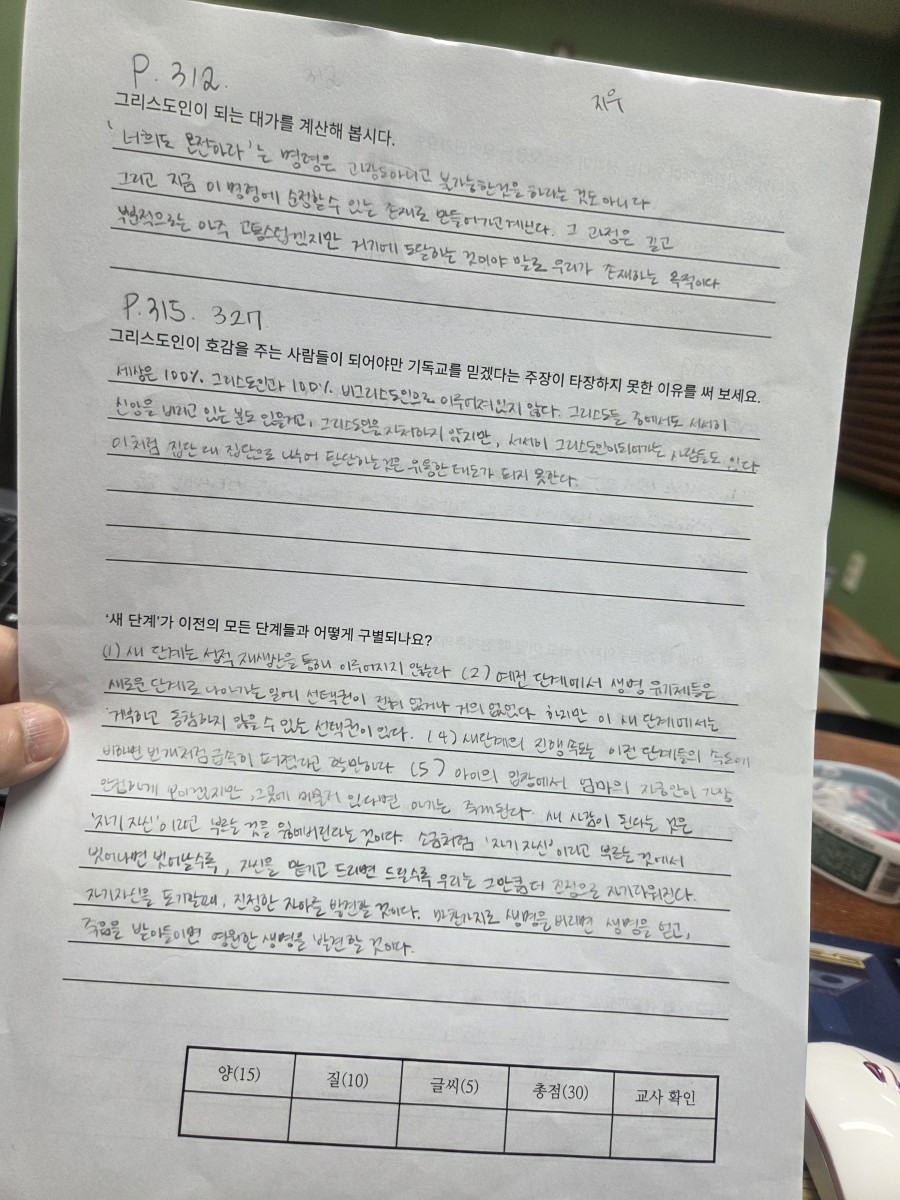 P. 312.
지우
그리스도인이 되는 대가를 계산해 봅시다.
'너희도 온전하라'는 명령은 과장도아니고 불가능한것을 하라는 것도 아니다.
그리고 지금 이 명령에 순종할 수 있는 존재로 만들어가고계신다. 그 과정은 길고
부분적으로는 아주 고통스럽겠지만 거기에 도달하는 것이야 말로 우리가 존재하는 목적이다
P.315. 327
그리스도인이 호감을 주는 사람들이 되어야만 기독교를 믿겠다는 주장이 타장하지 못한 이유를 써 보세요.
세상은 100% 그리스도인과 100% 비그리스도인으로 이루어져있지 않다. 그리스도들 중에서도 서서히
신앙을 버리고 있는 분도 있을거고, 그리스도인을 자처하지 않지만, 서서히 그리스도인이되어가는 사람들도 있다
이처럼 집단 대 집단으로 나누어 판단하는것은 유용한 태도가 되지 못한다.
'새 단계'가 이전의 모든 단계들과 어떻게 구별되나요?
(1) 새 단계는 성적 재생산을 통해 이루어지지 않는다 (2) 예전 단계에서 생명 유기체들은
새로운 단계로 나아가는 일에 선택권이 전혀 없거나 거의 없었다 하지만 이 새 단계에서는
거부하고 동참하지 않을 수 있는 선택권이 있다. (4) 새단계의 진행 속도는 이전 단계들의 속도에
비하면 번개처럼 급속히 퍼졌다고 할만하다 (5) 아이의 입장에서 엄마의 자궁안이 가장
안전하게 보이겠지만, 그곳에 머물러 있다면 아기는 죽게된다. 새 사람이 된다는 것은
'자기 자신'이라고 부르는 것을 잃어버린다는 것이다. 소금처럼 '자기 자신'이라고 부르는 것에서
벗어나면 벗어날수록, 자신을 맡기고 드리면 드릴수록 우리는 그만큼 더 진정으로 자기다워진다.
자기자신을 포기할때, 진정한 자아를 발견할 것이다. 마찬가지로 생명을 버리면 생명을 얻고,
죽음을 받아들이면 영원한 생명을 발견할 것이다.
양(15) 질(10) 글씨(5) 총점(30) 교사 확인